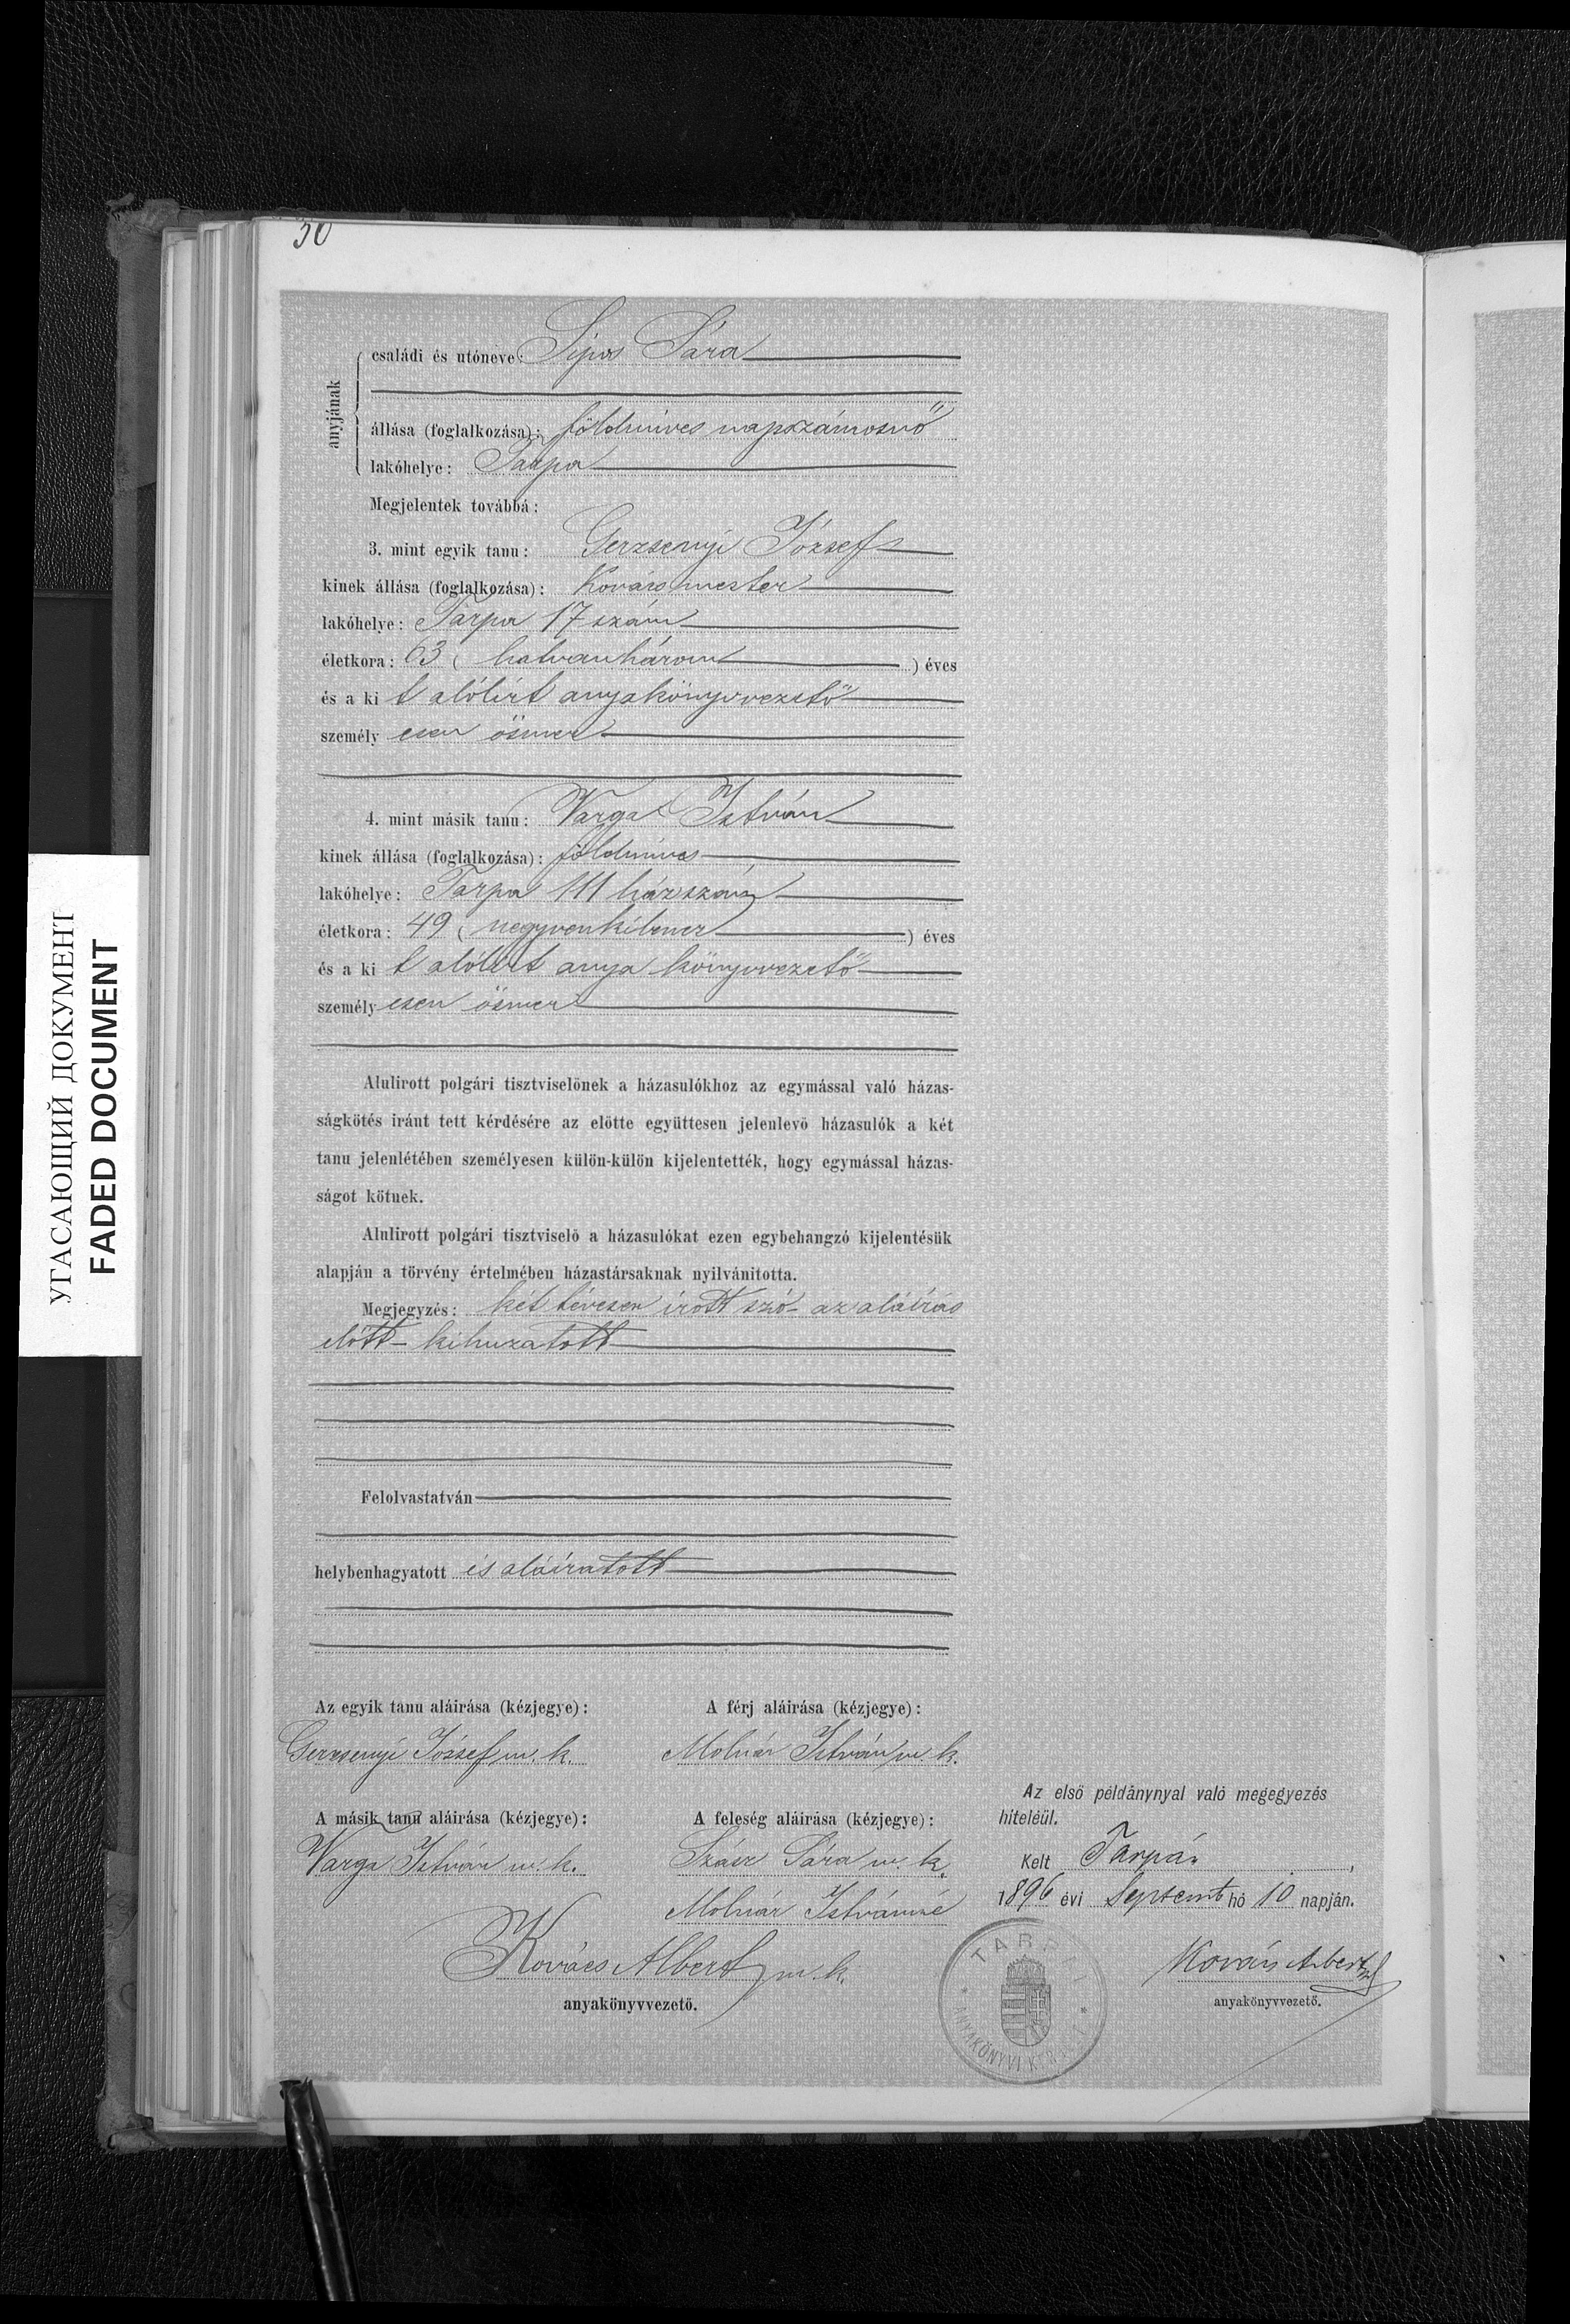 50
anyjának
családi és utóneve: Sipos Sára
állása (foglalkozása): földmíves napszámosnő
lakóhelye: Tarpa
Megjelentek továbbá:
3. mint egyik tanu: Gerzsenyi József
kinek állása (foglalkozása): Kovács mester
lakóhelye: Tarpa 17 szám
életkora: 63 (hatvanhárom) éves
és a ki t alólirt anyakönyvvezető
személy esen ösmer
4. mint másik tanu: Varga István
kinek állása (foglalkozása): földmíves
lakóhelye: Tarpa 111 házszám
életkora: 49 (negyvenkilenc) éves
és a ki t alólirt anya könyvvezető
személy esen ösmer
Alulirott polgári tisztviselőnek a házasulókhoz az egymással való házas-
ságkötés iránt tett kérdésére az előtte együttesen jelenlevő házasulók a két
tanu jelenlétében személyesen külön-külön kijelentették, hogy egymással házas-
ságot kötnek.
Alulirott polgári tisztviselő a házasulókat ezen egybehangzó kijelentésük
alapján a törvény értelmében házastársaknak nyilvánitotta.
Megjegyzés: két tévesen írott szó - az aláírás
előtt - kihuzatott
Felolvastatván
helybenhagyatott és aláíratott
Az egyik tanu aláirása (kézjegye): A férj aláirása (kézjegye):
Gerzsenyi József m. k. Molnár István m. k.
A másik tanu aláirása (kézjegye): A feleség aláirása (kézjegye):
Varga István m. k. Szász Sára m. k.
Molnár Istvánné
Kovács Albert m. k.
anyakönyvvezető.
Az első példánynyal való megegyezés
hiteléül.
Kelt Tarpán,
1896 évi Septemb hó 10 napján.
Kovács Albert
anyakönyvvezető.
TARPAI
ANYAKÖNYVI KERÜLET
УГАСАЮЩИЙ ДОКУМЕНТ
FADED DOCUMENT